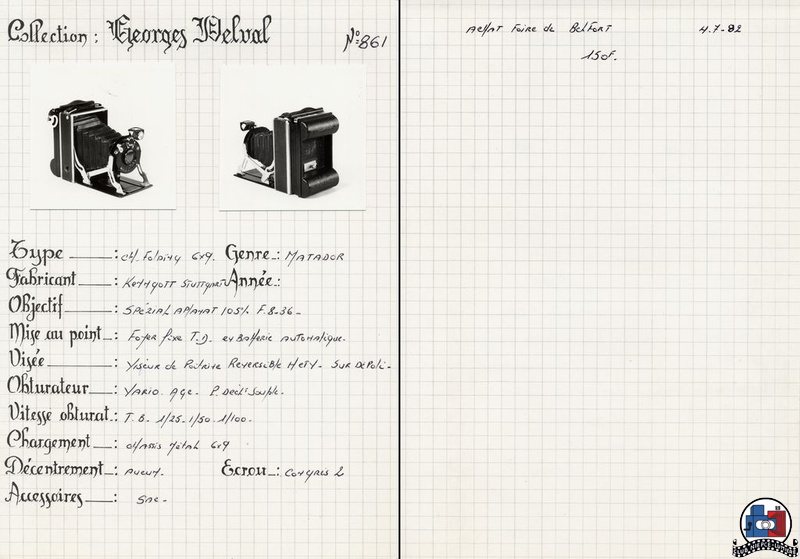 Collection : Georges Delval
N° 861
Achat Foire de Belfort 4.7.82
150F.
Type : ch. Folding 6x9. Genre : MATADOR
Fabricant : Stuttgart Année :
Objectif : SPÉCIAL APLANAT 105% F.8-36-
Mise au point : Foyer fixe T.D. en Batterie automatique.
Visée : Viseur de Poitrine Reversible Hety - Sur Depoli-
Obturateur : VARIO. AGC. P. Décl. Souple.
Vitesse obturat. : T.B. 1/25-1/50.1/100.
Chargement : chassis Métal 6x9
Décentrement : Aucun. Ecrou : Congrès 2
Accessoires : Sac -